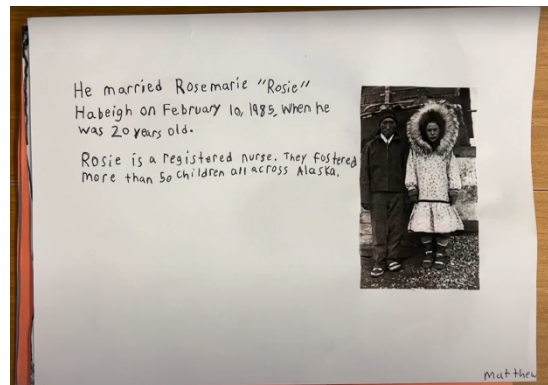 He married Rosemarie "Rosie"
Habeigh on February 10, 1985, when he
was 20 years old.
Rosie is a registered nurse. They fostered
more than 50 children all across Alaska.
Matthew